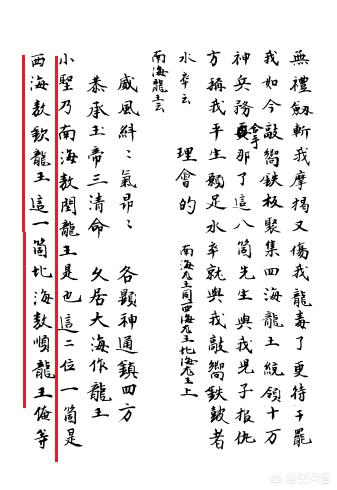 無禮劔斬我摩揭又傷我龍毒了更待干罷
我如今敲嚮鉄板聚集四海龍王統領十万
神兵務拿那了這八箇先生與我兒子報仇
方稱我平生願足水卒就與我敲嚮鉄鼓者
水卒云 理會的 南海龙王同西海龙王北海龙王上
南海龍王云
威風糾〻氣昂〻 各顯神通鎮四方
恭承玉帝三清命 久居大海作龍王
小聖乃南海敖閏龍王是也這二位一箇是
西海敖欽龍王這一箇北海敖順龍王俺等
悟空问答